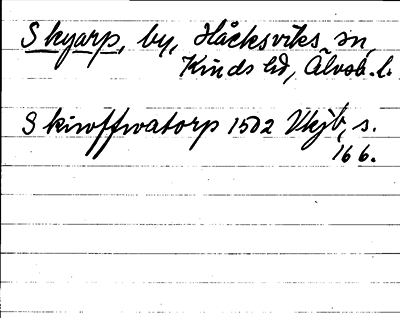 Skyarp, by, Håcksviks sn,
Kinds hd, Älvsb. l.
Skiroffwatorp 1502 Vkjb, s.
166.